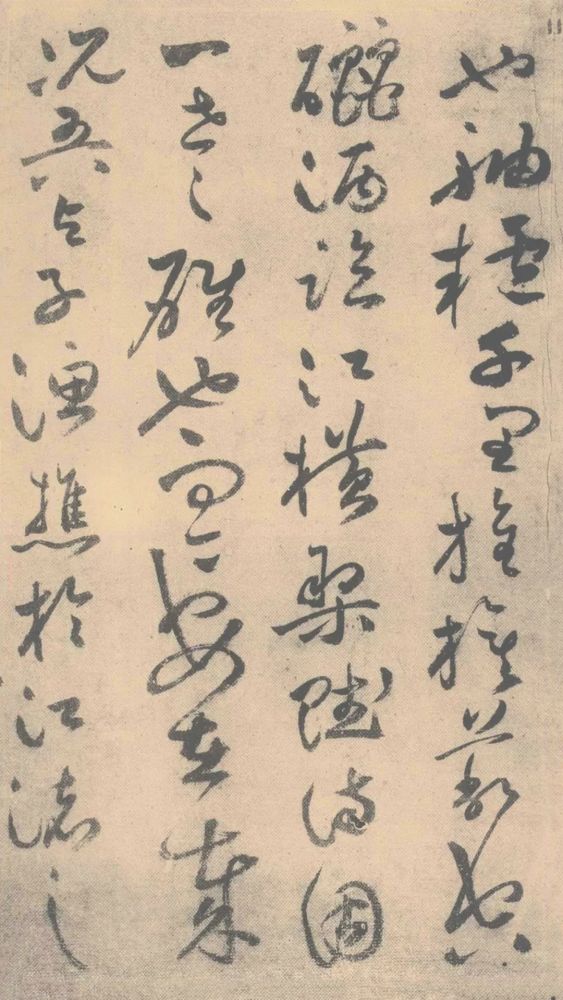 也舳艫千里旌旗蔽空
釃酒臨江橫槊賦詩固
一世之雄也而今安在哉
况吾与子漁樵於江渚之